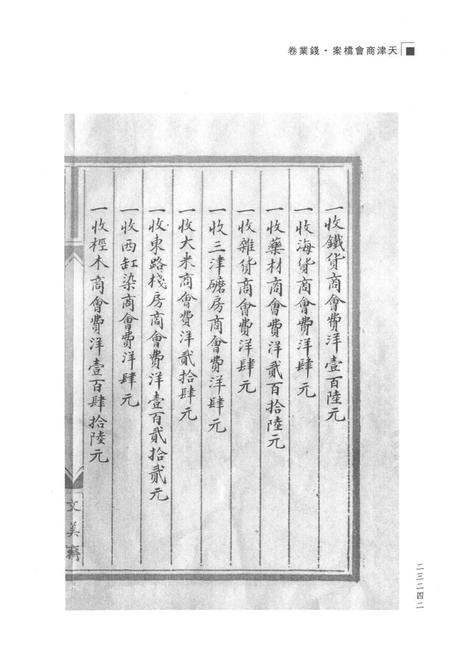 天津商會檔案·錢業卷
一收鐵貨商會費洋壹百陸元
一收海貨商會費洋肆元
一收藥材商會費洋貳百拾陸元
一收雜貨商會費洋肆元
一收三津磨房商會費洋肆元
一收大米商會費洋貳拾肆元
一收東路棧房商會費洋壹百貳拾貳元
一收西缸染商會費洋肆元
一收桱木商會費洋壹百肆拾陸元
文美齋